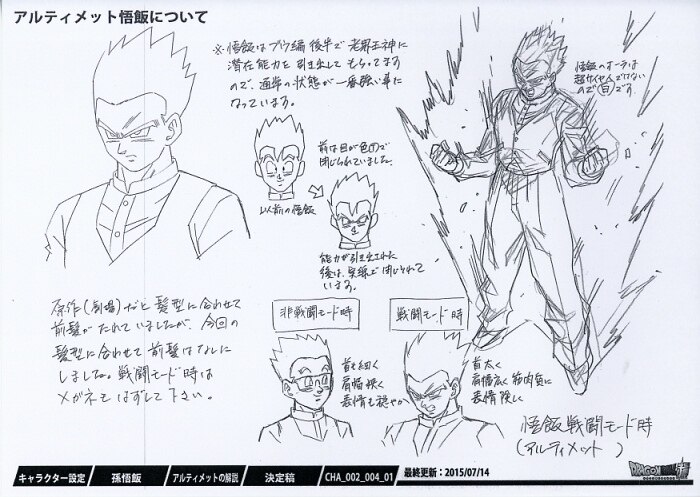 アルティメット悟飯について
※悟飯はブウ編後半で老界王神に
潜在能力を引き出してもらってます
ので、通常の状態が一番強い事に
なっています。
悟飯のオーラは
超サイヤ人ではない
ので白です。
前は目が色で
閉じられていました。
以前の悟飯
能力が引き出された
後は、実線で閉じられて
います。
原作(劇場)だと髪型に合わせて
前髪がたれていましたが、今回の
髪型に合わせて前髪はなしに
しました。戦闘モード時は
メガネもはずして下さい。
非戦闘モード時
首も細く
肩幅狭く
表情も穏やか
戦闘モード時
首太く
肩幅広く筋肉質に
表情険しく
悟飯戦闘モード時
(アルティメット)
キャラクター設定
孫悟飯
アルティメットの解説
決定稿
CHA_002_004_01
最終更新:2015/07/14
DRAGON BALL 超